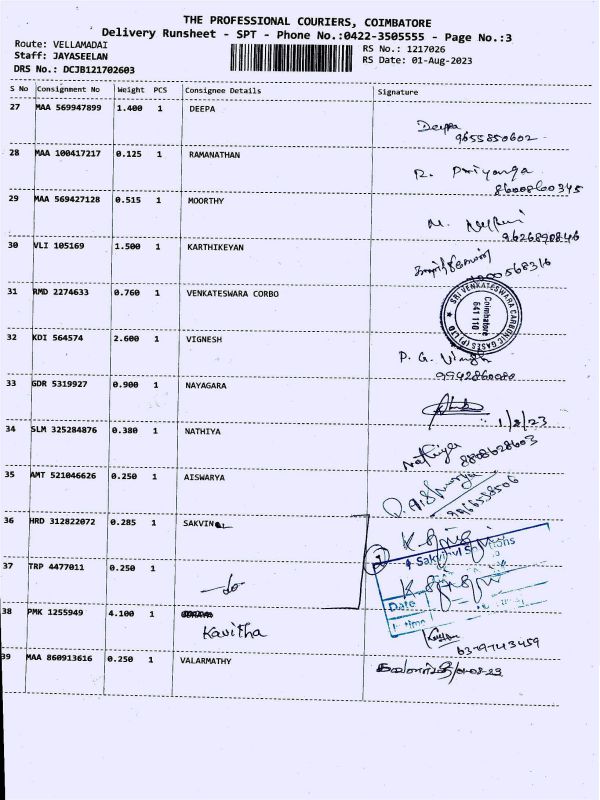 THE PROFESSIONAL COURIERS, COIMBATORE
Delivery Runsheet - SPT - Phone No.:0422-3505555 - Page No.:3
Route: VELLAMADAI
RS No.: 1217026
Staff: JAYASEELAN
RS Date: 01-Aug-2023
DRS No.: DCJB121702603
S No Consignment No Weight PCS Consignee Details Signature
27 MAA 569947899 1.400 1 DEEPA
Deepa
9655850602
28 MAA 100417217 0.125 1 RAMANATHAN
R. Priyanga
8600860345
29 MAA 569427128 0.515 1 MOORTHY
9626890846
30 VLI 105169 1.500 1 KARTHIKEYAN
31 RMD 2274633 0.760 1 VENKATESWARA CORBO
SRI VENKATESWARA CARBONIC GASES (P) LTD
Coimbatore
641 110
32 KDI 564574 2.600 1 VIGNESH
P. G.
33 GDR 5319927 0.900 1 NAYAGARA
1/8/23
34 SLM 325284876 0.380 1 NATHIYA
Nathiya
8808628603
35 AMT 521046626 0.250 1 AISWARYA
9966558506
36 HRD 312822072 0.285 1 SAKVIN
37 TRP 4477011 0.250 1
do
Date
time
38 PMK 1255949 4.100 1
Kavitha
6379743459
39 MAA 860913616 0.250 1 VALARMATHY
01-08-23